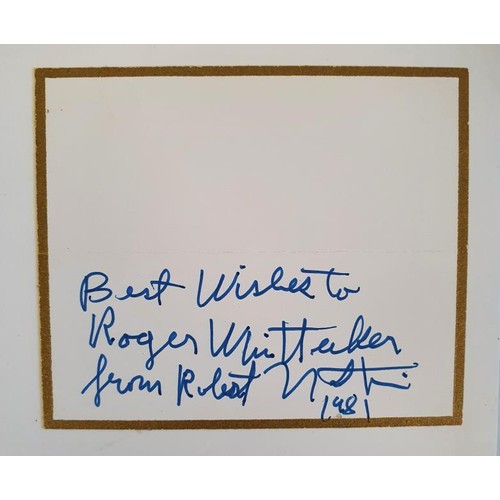 Best Wishes to
Roger Whittaker
from Robert
1981